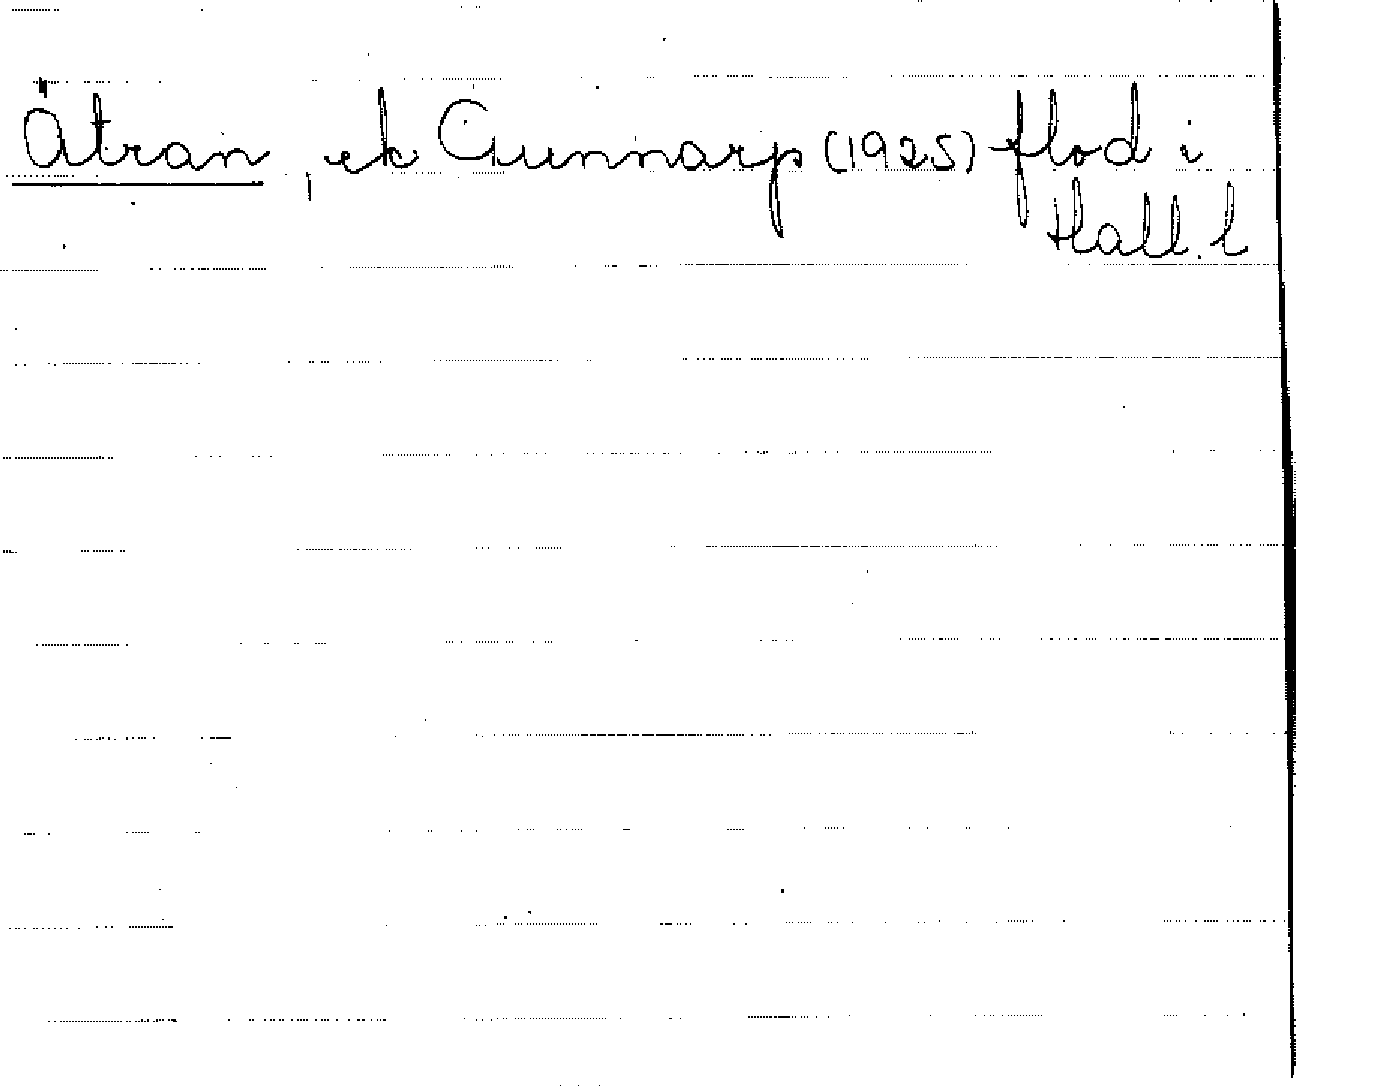 Ätran, ek Gunnarp (1925) flod i
Hall. l